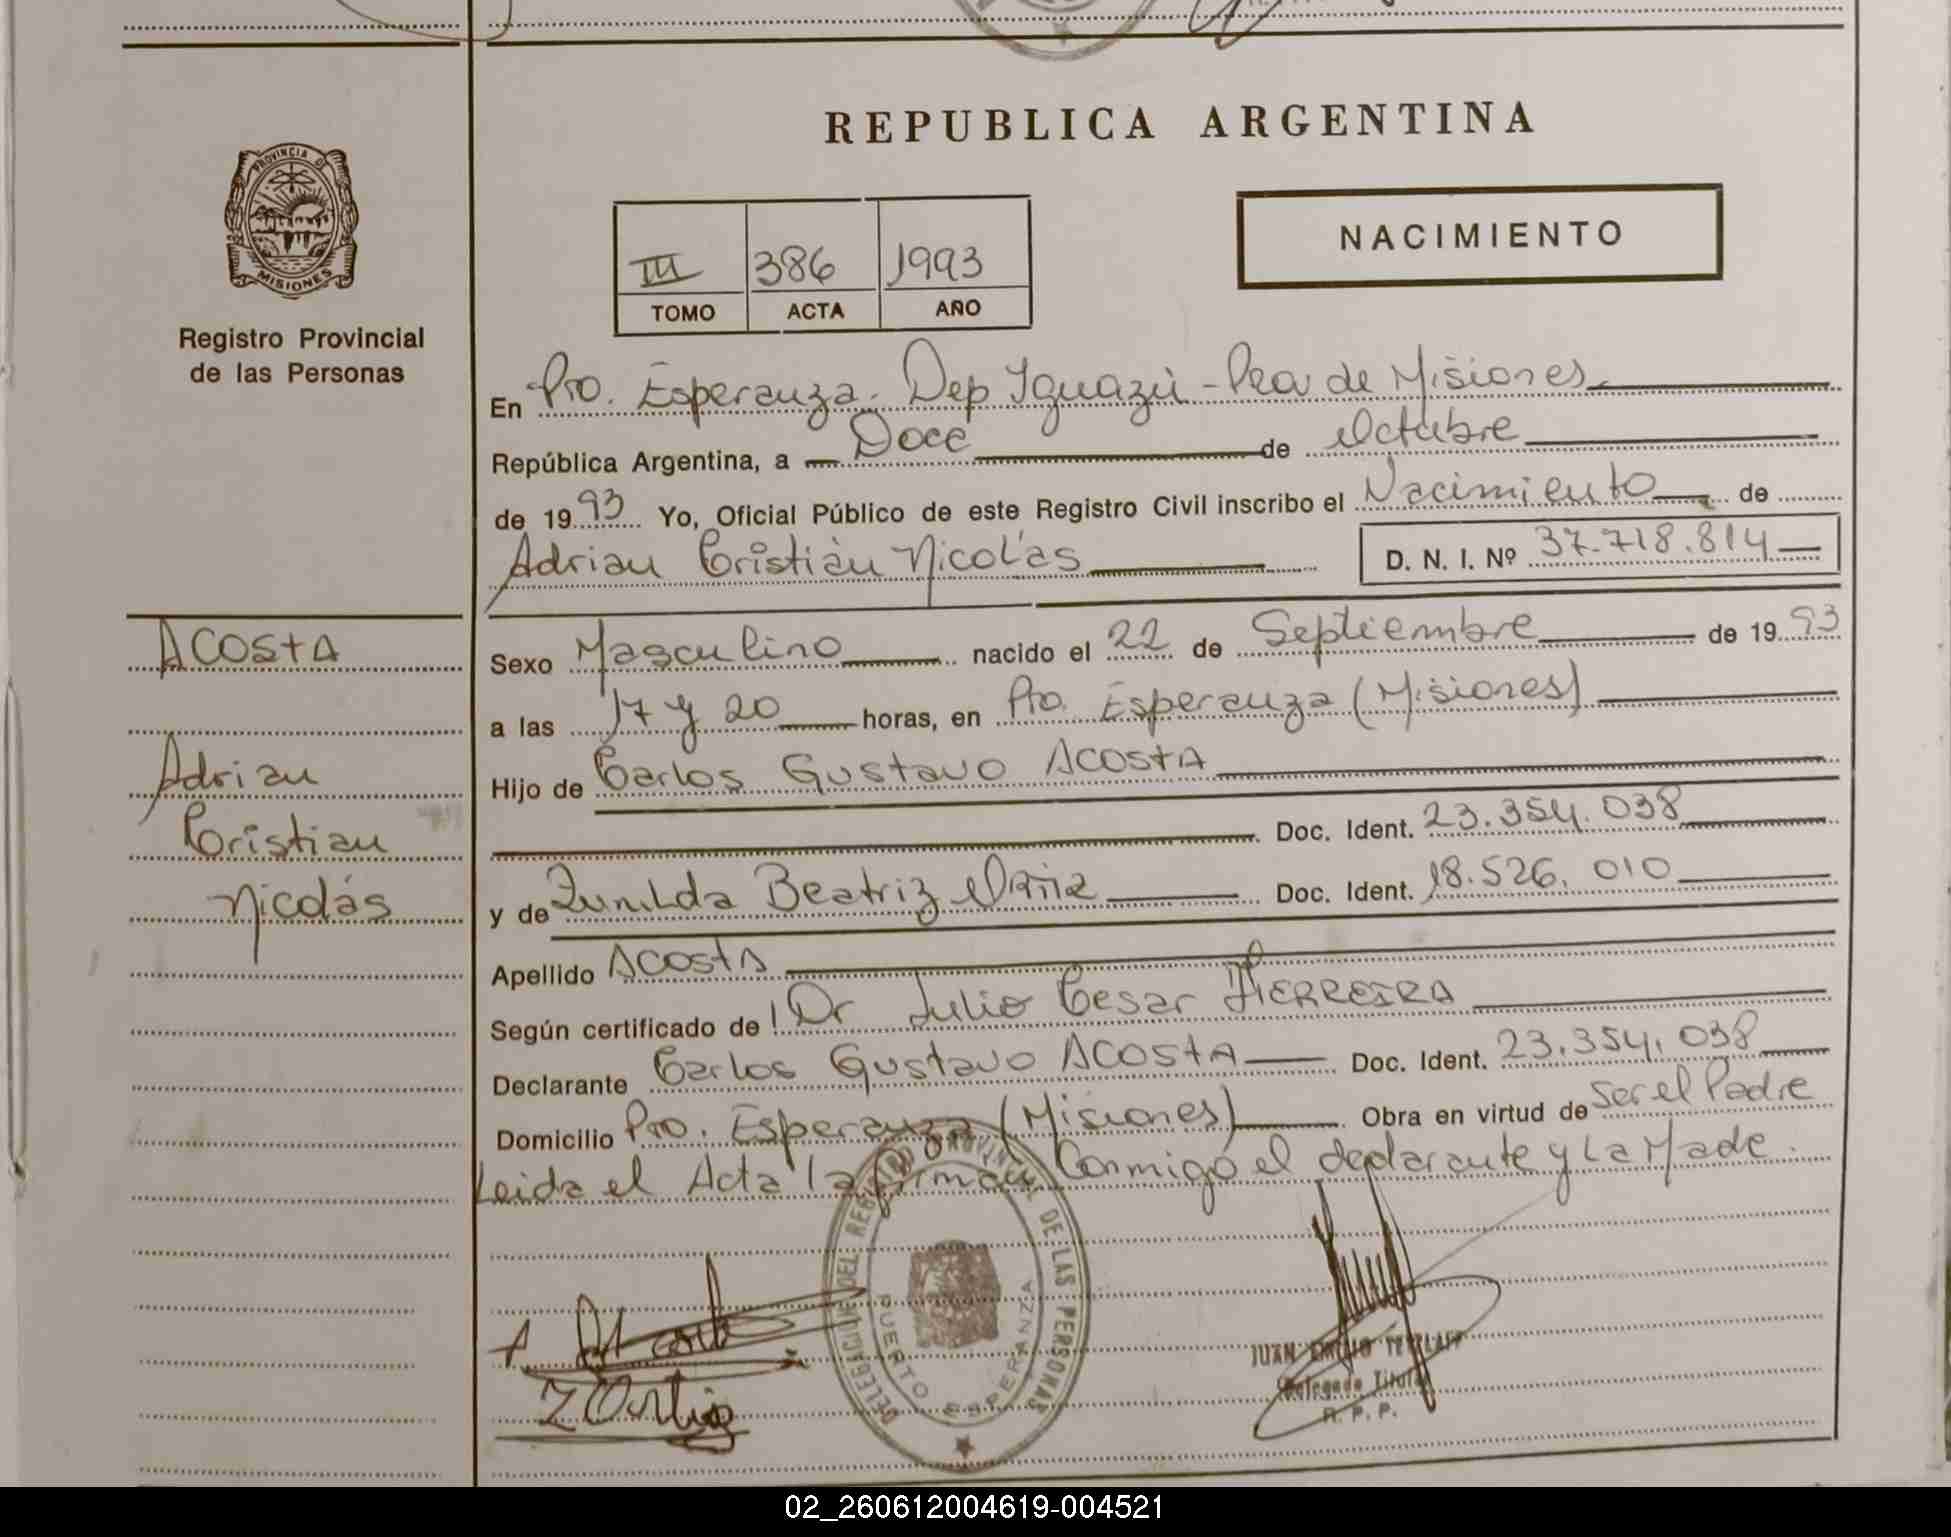 REPUBLICA ARGENTINA
PROVINCIA DE
MISIONES
Registro Provincial
de las Personas
NACIMIENTO
III 386 1993
TOMO ACTA AÑO
En Pto. Esperanza. Dep Iguazú - Pcia de Misiones
República Argentina, a Doce de Octubre
de 1993 Yo, Oficial Público de este Registro Civil inscribo el Nacimiento de
Adrian Cristián Nicolás D. N. I. Nº 37.718.814
ACOSTA
Adrian
Cristian
Nicolás
Sexo Masculino nacido el 22 de Septiembre de 1993
a las 17 y 20 horas, en Pto. Esperanza (Misiones)
Hijo de Carlos Gustavo ACOSTA
Doc. Ident. 23.354.038
y de Zunilda Beatriz Doc. Ident. 18.526.010
Apellido ACOSTA
Según certificado de Dr Julio Cesar FIERREIRA
Declarante Carlos Gustavo ACOSTA Doc. Ident. 23.354.038
Domicilio Pto. Esperanza (Misiones) Obra en virtud de ser el Padre
Leida el Acta la firman Conmigo el declarante y La Made.
DELEGACION DEL REGISTRO PROVINCIAL DE LAS PERSONAS
PUERTO ESPERANZA
JUAN EMILIO
Delegado Titular
R. P. P.
02_260612004619-004521